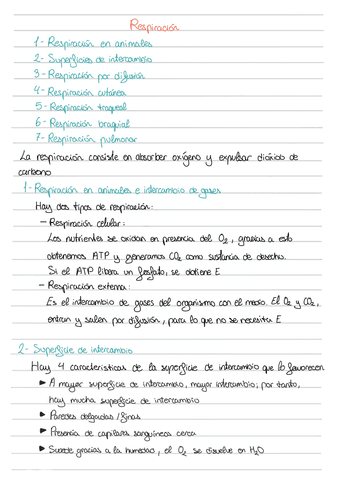 Respiración
1- Respiración en animales
2- Superficies de intercambio
3- Respiración por difusión
4- Respiración cutánea
5- Respiración traqueal
6- Respiración braquial
7- Respiración pulmonar
La respiración consiste en absorber oxígeno y expulsar dióxido de
carbono
1- Respiración en animales e intercambio de gases
Hay dos tipos de respiración:
- Respiración celular:
Los nutrientes se oxidan en presencia del O2, gracias a esto
obtenemos ATP y generamos CO2 como sustancia de desecho.
Si el ATP libera un fosfato, se obtiene E
- Respiración externa:
Es el intercambio de gases del organismo con el medio. El O2 y CO2,
entran y salen por difusión, para lo que no se necesita E
2- Superficie de intercambio
Hay 4 características de la superficie de intercambio que lo favorecen
► A mayor superficie de intercambio, mayor intercambio; por tanto,
hay mucha superficie de intercambio
► Paredes delgadas/finas
► Presencia de capilares sanguíneos cerca
► Sucede gracias a la humedad, el O2 se disuelve en H2O